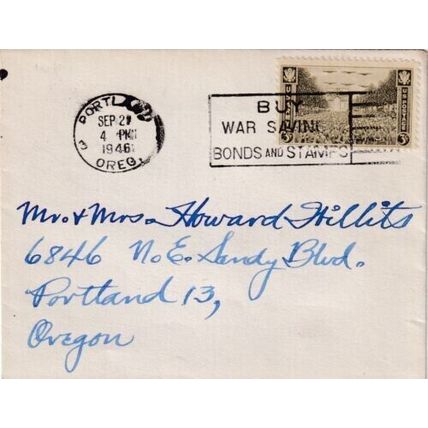 PORTLAND
SEP 27
4 PM
1946
3 OREG.
BUY
WAR SAVINGS
BONDS AND STAMPS
U.S. POSTAGE
3¢
Mr. & Mrs. Howard Hillits
6846 N.E. Sandy Blvd.
Portland 13,
Oregon